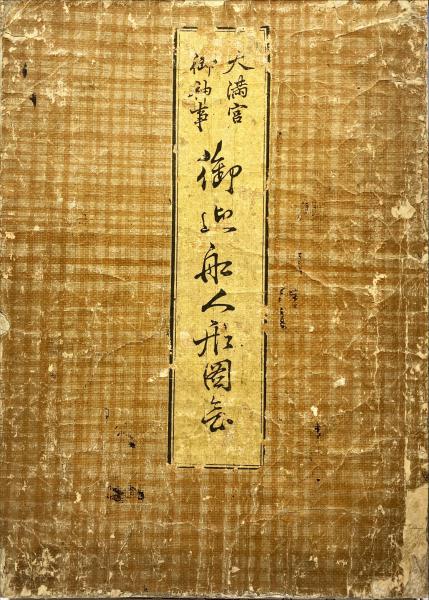 天満宮
御神事
御迎船人形図会